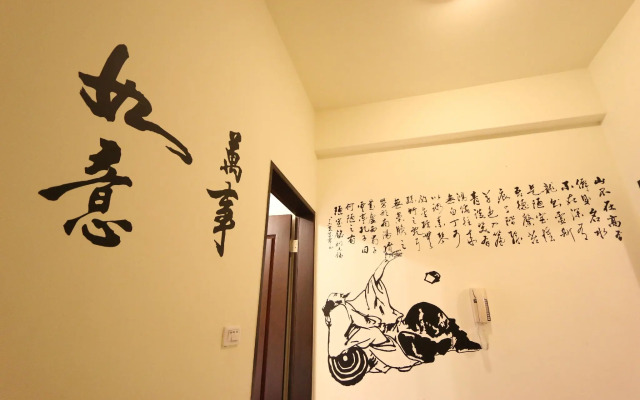 萬事
如意
山不在高有
仙則名水
不在深有
龍則靈斯
是陋室惟
吾德馨苔
痕上階綠
草色入簾
青談笑有
鴻儒往來
無白丁可
以調素琴
閱金經無
絲竹之亂耳
無案牘之
勞形南陽諸
葛廬西蜀子
雲亭孔子曰
何陋之有
陋室銘